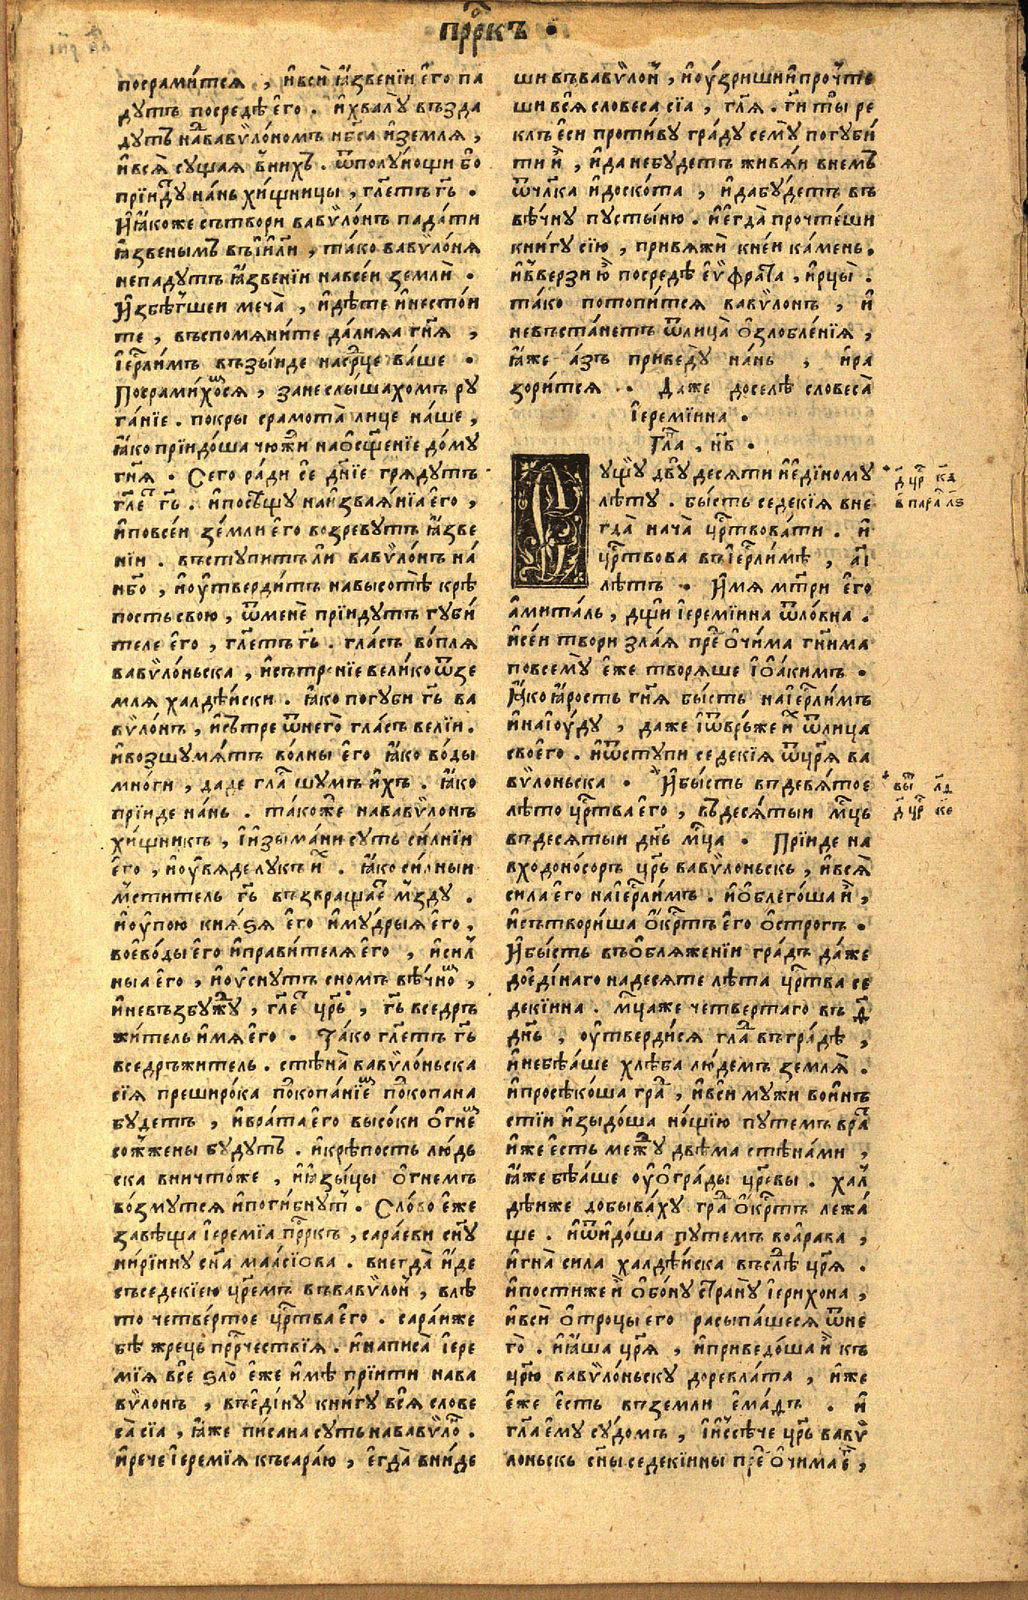 прⷪ҇ркъ .
посрами́тсѧ , и҆всѝ ꙗ҆́звенїи е҆го̀ па
дꙋтъ посредѣ̀ е҆го̀ . и҆хвалꙋ̀ възда
дꙋтъ наⷣвавѷло́номъ нб҃са и҆земля ,
и҆всѧ̀ сꙋщаѧ в̾нихъ . ѿполꙋ́нощи бо
прїи́дꙋ на́нь хи́щницы , гл҃етъ гь҃ .
И҆ꙗ҆коже сътвори вавѷло́нъ пада́ти
ꙗ҆́звенымъ въі҆и҃ли , та́ко вавѷло́нѧ
непадꙋтъ ꙗ҆́звенїи навсеи землѝ .
И҆збѣ́гшеи меча̀ , и҆дѣ́те и҆несто́и
те , въспомѧни́те да́лнѧѧ гн҃ѧ ,
і҆ерⷭ҇ли́мъ възы́иде насрⷣце ва́ше .
Посрами́хоⷨсѧ , зане слы́шахомъ рꙋ
га́нїе . покры срамота̀ лице на́ше ,
ꙗ҆́ко прїидо́ша чюжⷣи наѻ҆сщ҃енїе до́мꙋ
гн҃ѧ . Сего ра́ди се дн҃їе грѧдꙋ́тъ
гл҃еⷮ гь҃ . и҆посѣщꙋ̀ наи҆зваѧ́нїа е҆го̀ ,
и҆повсеи зе́мли е҆го возревꙋ́тъ ꙗ҆́зве
нїи . въстꙋпитъ ли вавѷло́нъ на́
нб҃о , и҆оу҆твердитъ навысотѣ̀ крѣ
пость свою , ѿменѐ прїидꙋтъ гꙋби́
теле е҆го̀ , гл҃етъ гь҃ . гла́съ во́плѧ
вавѷло́ньска , и҆сътре́нїе вели́ко ѿзе
млѧ халдѣ́иски . ꙗ҆́ко погꙋби гь҃ ва
вѷло́нъ , и҆сътре ѿнего̀ гла́съ велїи .
и҆возшꙋмѧ́тъ во́лны е҆го ꙗ҆́ко во́ды
мно́ги , даде глаⷭ҇ шꙋ́мъ и҆́хъ . ꙗ҆́ко
прїиде на́нь . та́коже нававѷло́нъ
хи́щникъ , и҆и҆зы́мани сꙋть си́лнїи
е҆го̀ , и҆оу҆вѧде лꙋкъ иⷯ . ꙗ҆ко си́лныи
м҆сти́тель гь҃ възвраща́еⷮ м҆здꙋ .
и҆оу҆пою кнѧ́ѕѧ е҆го и҆мꙋ́дрыѧ е҆го̀ ,
воево́ды е҆го и҆прави́телѧ е҆го̀ , и҆сил
ныѧ е҆го , и҆оу҆снꙋтъ сно́мъ вѣ́чноⷨ ,
и҆невъзбꙋжⷣꙋ , гл҃еⷮ цр҃ь , гь҃ вседръ
жи́тель и҆мѧ е҆го̀ . Та́ко гл҃етъ гь҃
вседръжи́тель . стѣна̀ вавѷло́ньска
сїѧ̀ преширо́ка поⷣкопа́нїеⷨ поⷣкопана
бꙋ́детъ , и҆вра́та е҆го высо́ки ѻ҆гнеⷨ
сожжены бꙋдꙋтъ . и҆крѣ́пость лю́дь
ска вничто́же , и҆ꙗ҆зы́цы ѻ҆гнемъ
во́змꙋтсѧ и҆поги́бнꙋⷮ . Сло́во е҆же
завѣща і҆еремїа прⷪ҇ркъ , сараеви сн҃ꙋ
ни́рїинꙋ сн҃а маасїова . внегда̀ и҆́де
съседекїею цр҃емъ въвавѷлоⷩ , влѣ
то четве́ртое црⷭ҇тва е҆го̀ . сара́иже
бѣ жре́цъ прⷪ҇рчествїѧ . и҆написа̀ і҆ере
мїѧ все ѕло̀ е҆же и҆мѣ прїити нава
вѷло́нъ , въе҆ди́нꙋ кни́гꙋ всѧ̀ слове
са̀ сїа , ꙗ҆́же пи́сана сꙋть нававѷлоⷩ .
и҆рече і҆еремїѧ късара́ю , е҆гда̀ вни́де
ши въвавѷлоⷩ , и҆оу҆́зриши и҆прочте
ши всѧ̀ словеса сїа , гл҃ѧ . гн҃и ты ре
клъ е҆си проти́вꙋ гра́дꙋ семꙋ̀ погꙋби́
ти и҆̀ , и҆да небꙋ́детъ живѧ́и внемъ
ѿчл҃ка и҆доскота , и҆дабꙋ́детъ въ
вѣ́чнꙋ пꙋсты́ню . и҆е҆гда̀ прочте́ши
кни́гꙋ сїю , привѧжѝ кнеи ка́мень .
и҆вве́рзи ю҆̀ посредѣ е҆ѵ҆фраⷮа , и҆рцы̀ .
та́ко пото́питсѧ вавѷло́нъ , и҆
невъста́нетъ ѿлица̀ ѻ҆злобле́нїѧ ,
ꙗ҆́же а҆зъ приведꙋ̀ на́нь , и҆ра
зори́тсѧ . Да́же доселѣ словеса̀
і҆ереми́ина .
Глⷡ҇а , н҃в .
ꙋщꙋ двꙋ десѧти и҆е҆ди́номꙋ
лѣ́тꙋ . бы́сть седекі́ѧ вне
гда̀ нача̀ црⷭ҇твова́ти . и҆
црⷭ҇твова въі҆ерⷭ҇ли́мѣ , а҃і
лѣтъ . И҆мѧ мт҃ри е҆го
а҆мита́ль , дщи і҆ереми́ина ѿло́вна .
и҆сеи твори зла́ѧ преⷣ ѻ҆чи́ма гн҃има
повсемꙋ̀ е҆́же творѧ́ше і҆ѻа́кимъ .
Ꙗ҆́ко ꙗ҆́рость гн҃ѧ бы́сть наі҆ерⷭ҇ли́мъ
и҆наі҆оу́дꙋ , даже и҆ѿве́рьже иⷯ ѿлица
своего . и҆ѿстꙋпи седекі́ѧ ѿцр҃ѧ ва
вѷло́ньска . И҆бы́сть въдевѧ́тое
лѣ́то црⷭ҇тва е҆го , въдесѧ́тыи мцⷭ҇ь
въдесѧтыи дн҃ь мцⷭ҇а . Прїиде на
входоно́соръ цр҃ь вавѷло́ньскъ , и҆всѧ̀
сила е҆го наі҆ерⷭ҇ли́мъ . и҆ѻ҆блего́ша и҆̀ ,
и҆сътвори́ша ѻ҆́крⷭ҇тъ е҆го ѻ҆стро́гъ .
И҆бы́сть въѻ҆блѧже́нїи гра́дъ да́же
дое҆ди́наго надесѧте лѣ́та црⷭ҇тва се
деки́ина . мцⷭ҇аже четве́ртаго въ д҃
дн҃ь , оу҆тверди́сѧ глаⷣ въгра́дѣ ,
и҆небѣ́аше хлѣ́ба лю́демъ землѧ̀ .
и҆просѣко́ша граⷣ , и҆вси мꙋжи во́инъ
стїи и҆зыдо́ша но́щїю пꙋтемъ враⷮ
и҆же е҆сть межⷣꙋ двѣма стѣна́ми ,
ꙗ҆́же бѣ́аше оу҆ѻ҆гра́ды цр҃евы . хал
дѣи́же добыва́хꙋ граⷣ ѻ҆́крⷭ҇тъ лежа́
ще . и҆ѿидо́ша пꙋтемъ воа҆ра́ва ,
и҆гна̀ сила халдѣ́иска въслѣⷣ цр҃ѧ .
и҆пости́же и҆̀ ѻ҆бо́нꙋ странꙋ̀ і҆ерихо́на ,
и҆всѝ ѻ҆́троцы е҆го расыпа́шесѧ ѿне
го̀ . и҆ꙗ҆ша цр҃ѧ , и҆приведо́ша и҆̀ къ
цр҃ю вавѷло́ньскꙋ доревла́та , и҆же
е҆́же е҆́сть въземли е҆ма́дъ . и҆
гл҃а е҆мꙋ сꙋдо́мъ , и҆и҆ссѣче цр҃ь вавѷ
ло́ньскъ сн҃ы седеки́ины преⷣ ѻ҆чима еⷢ ,
д҃ црⷭ҇ к҃д
в парⷧ҇а л҃ѕ
д҃ црⷭ҇ к҃е